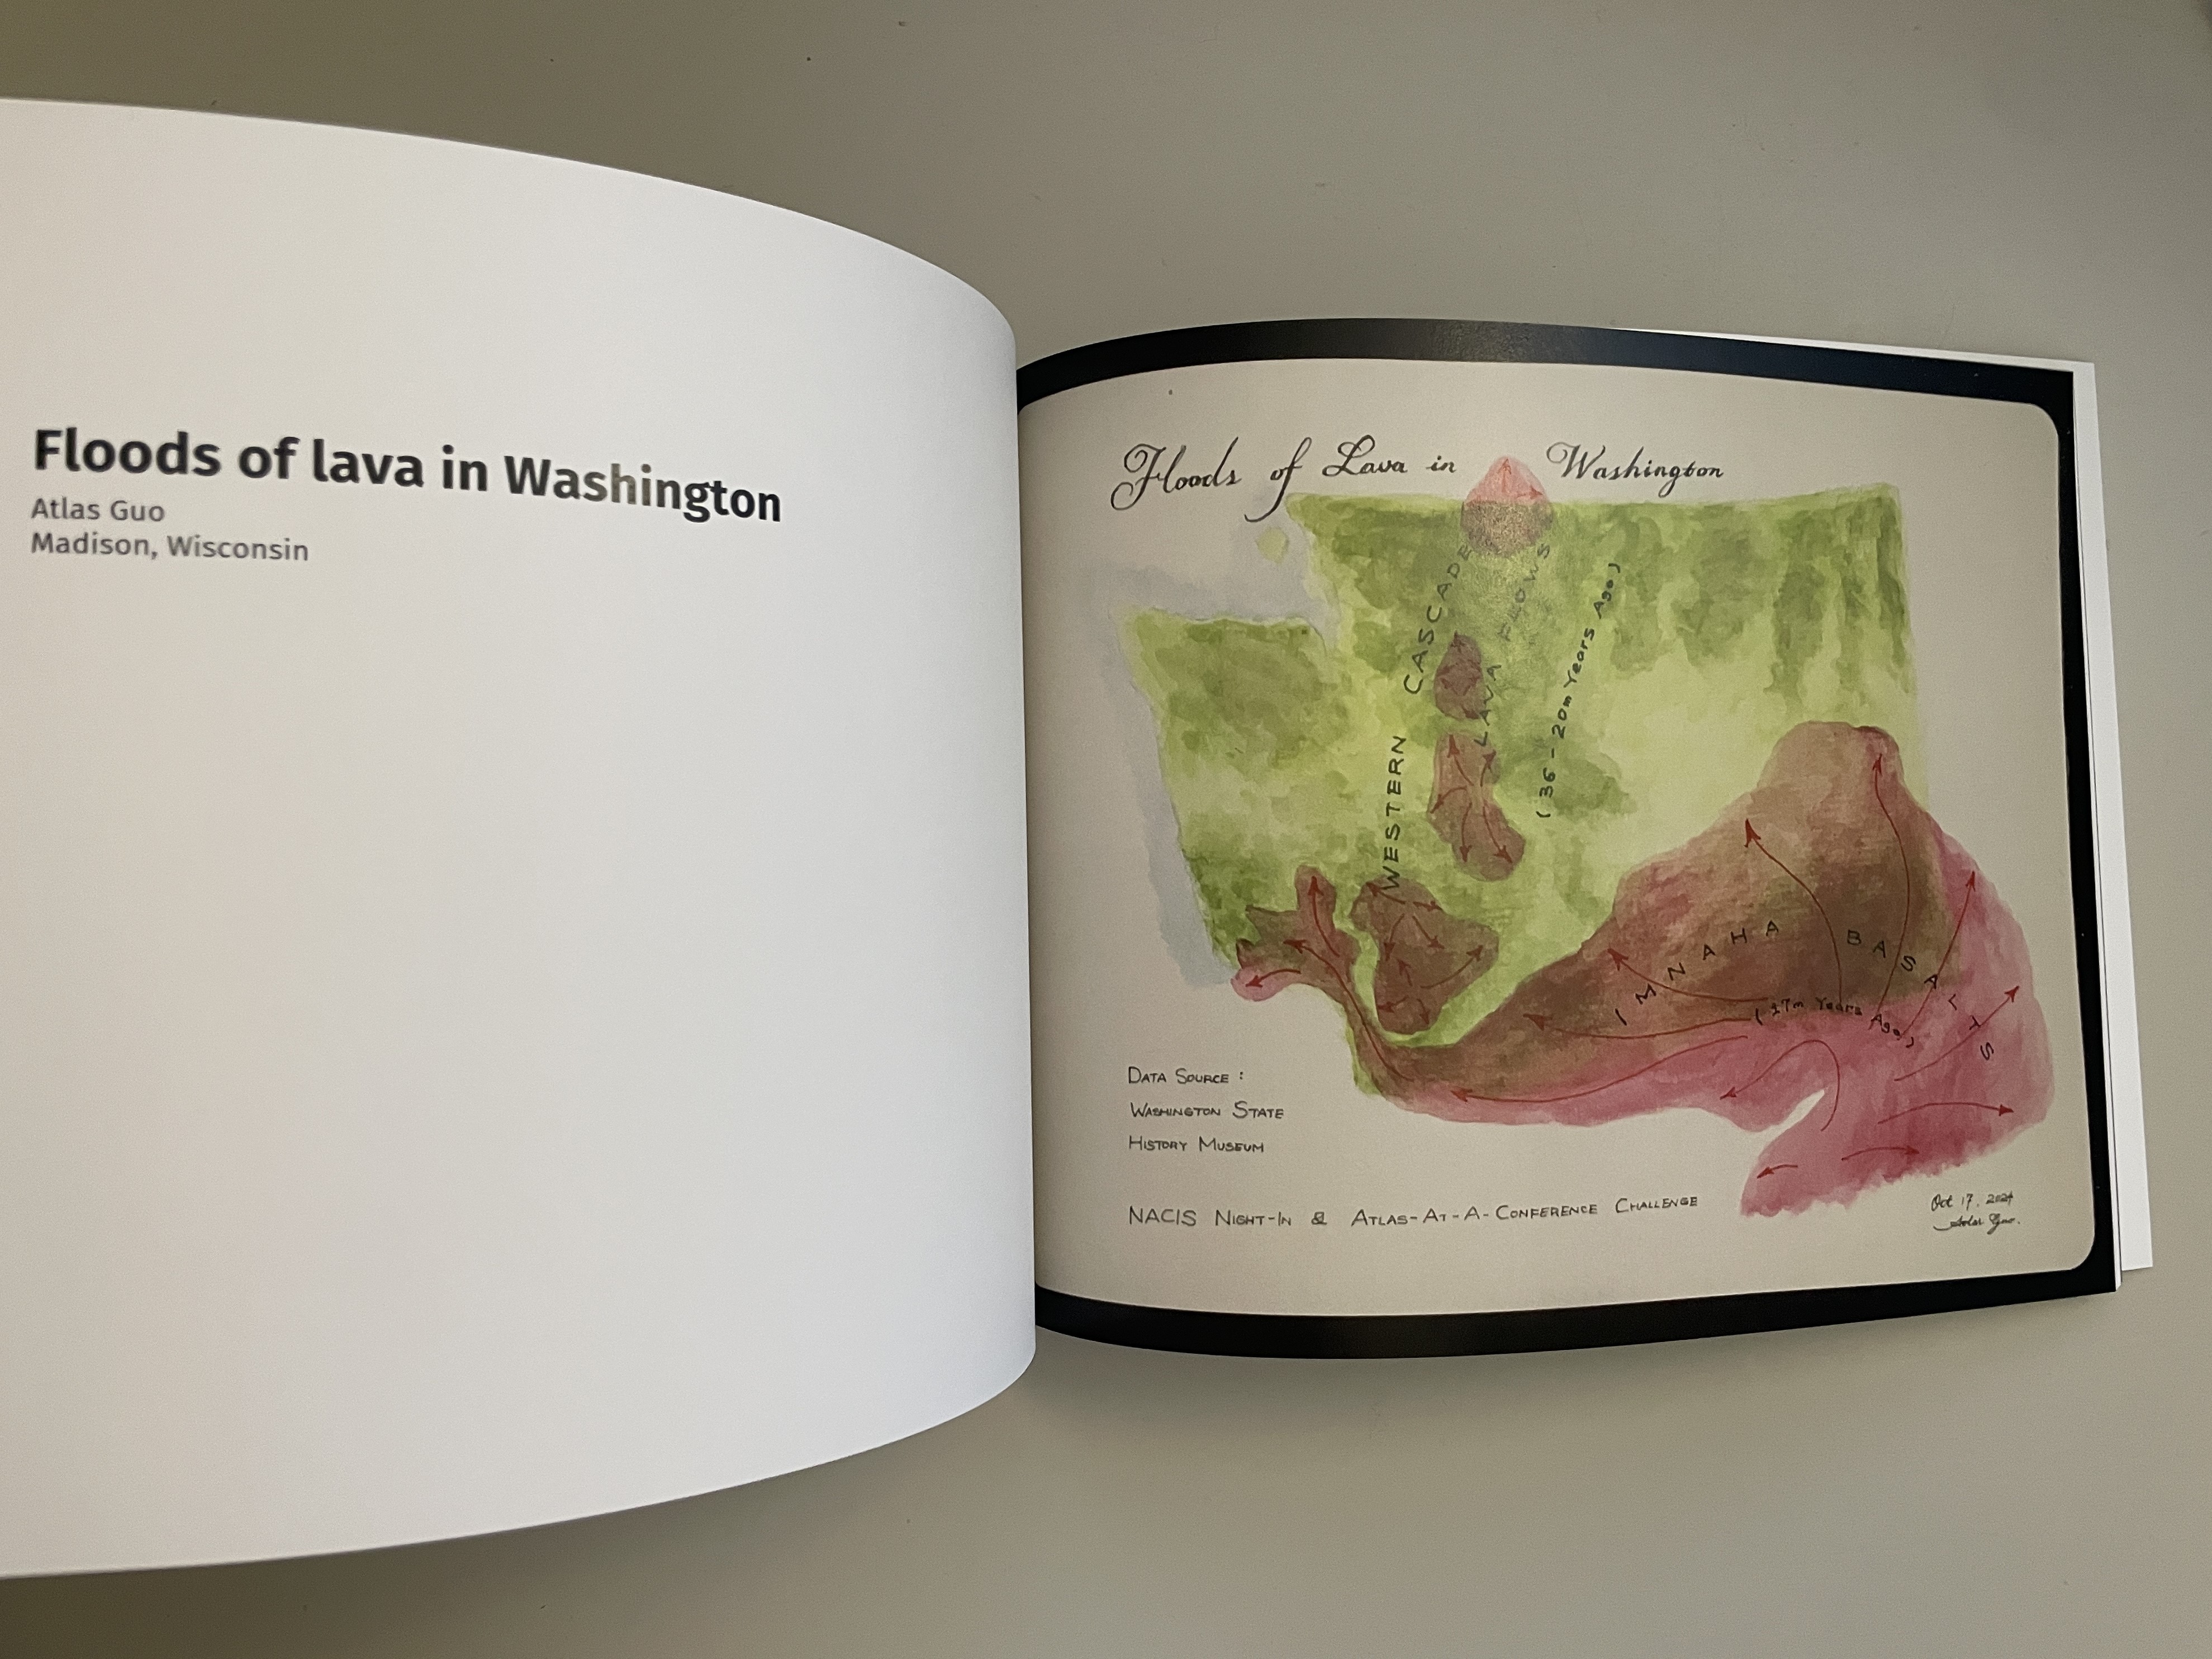 Floods of lava in Washington
Atlas Guo
Madison, Wisconsin
Floods of Lava in Washington
WESTERN CASCADE
LAVA FLOWS
(36 - 20m Years Ago)
IMNAHA BASALTS
(17m Years Ago)
DATA SOURCE :
WASHINGTON STATE
HISTORY MUSEUM
NACIS NIGHT-IN & ATLAS-AT-A-CONFERENCE CHALLENGE
Oct 17. 2024
Atlas Guo.